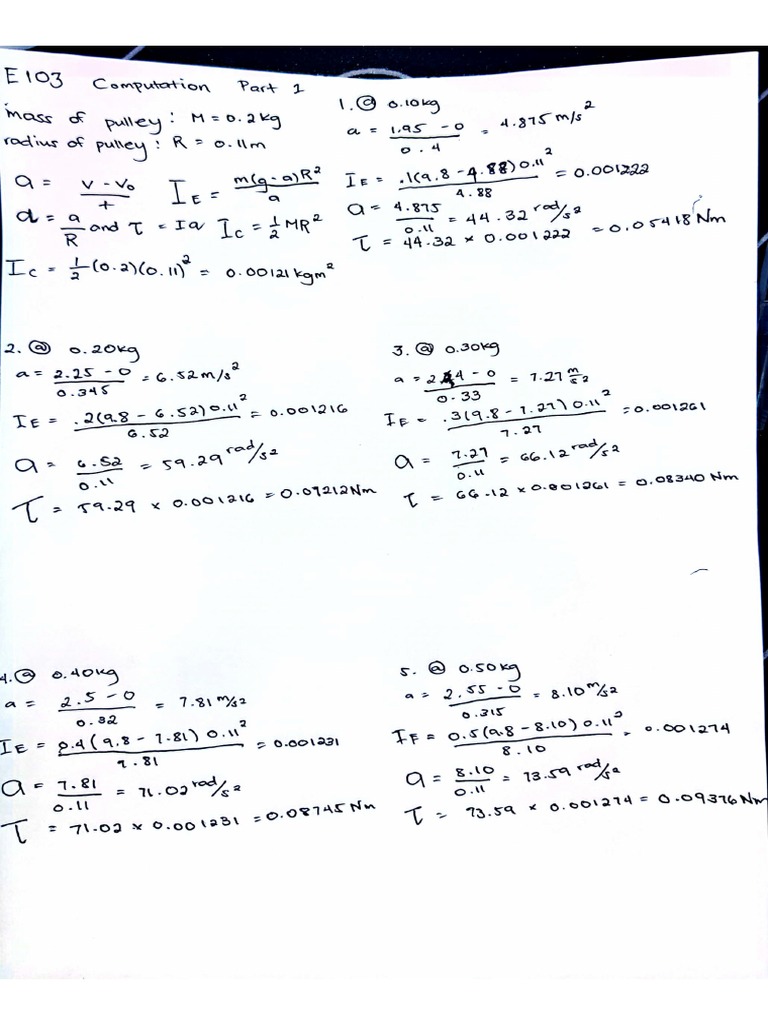 E103 Computation Part 1
mass of pulley : M = 0.2 kg
radius of pulley : R = 0.11m
a = (v - v₀)/t   I_E = m(g-a)R²/a
α = a/R and τ = Iα   I_C = ½MR²
I_C = ½(0.2)(0.11)² = 0.00121 kgm²
1. @ 0.10kg
a = (1.95 - 0)/0.4 = 4.875 m/s²
I_E = .1(9.8 - 4.88)0.11²/4.88 = 0.001222
a = 4.875/0.11 = 44.32 rad/s²
τ = 44.32 × 0.001222 = 0.05418 Nm
2. @ 0.20kg
a = (2.25 - 0)/0.345 = 6.52 m/s²
I_E = .2(9.8 - 6.52)0.11²/6.52 = 0.001216
a = 6.52/0.11 = 59.29 rad/s²
τ = 59.29 × 0.001216 = 0.07212Nm
3. @ 0.30kg
a = (2.4 - 0)/0.33 = 7.27 m/s²
I_E = .3(9.8 - 7.27)0.11²/7.27 = 0.001261
a = 7.27/0.11 = 66.12 rad/s²
τ = 66.12 × 0.001261 = 0.08340 Nm
4. @ 0.40kg
a = (2.5 - 0)/0.32 = 7.81 m/s²
I_E = 0.4(9.8 - 7.81)0.11²/7.81 = 0.001231
a = 7.81/0.11 = 71.02 rad/s²
τ = 71.02 × 0.001231 = 0.08745 Nm
5. @ 0.50kg
a = (2.55 - 0)/0.315 = 8.10 m/s²
I_E = 0.5(9.8 - 8.10)0.11²/8.10 = 0.001274
a = 8.10/0.11 = 73.59 rad/s²
τ = 73.59 × 0.001274 = 0.09376 Nm